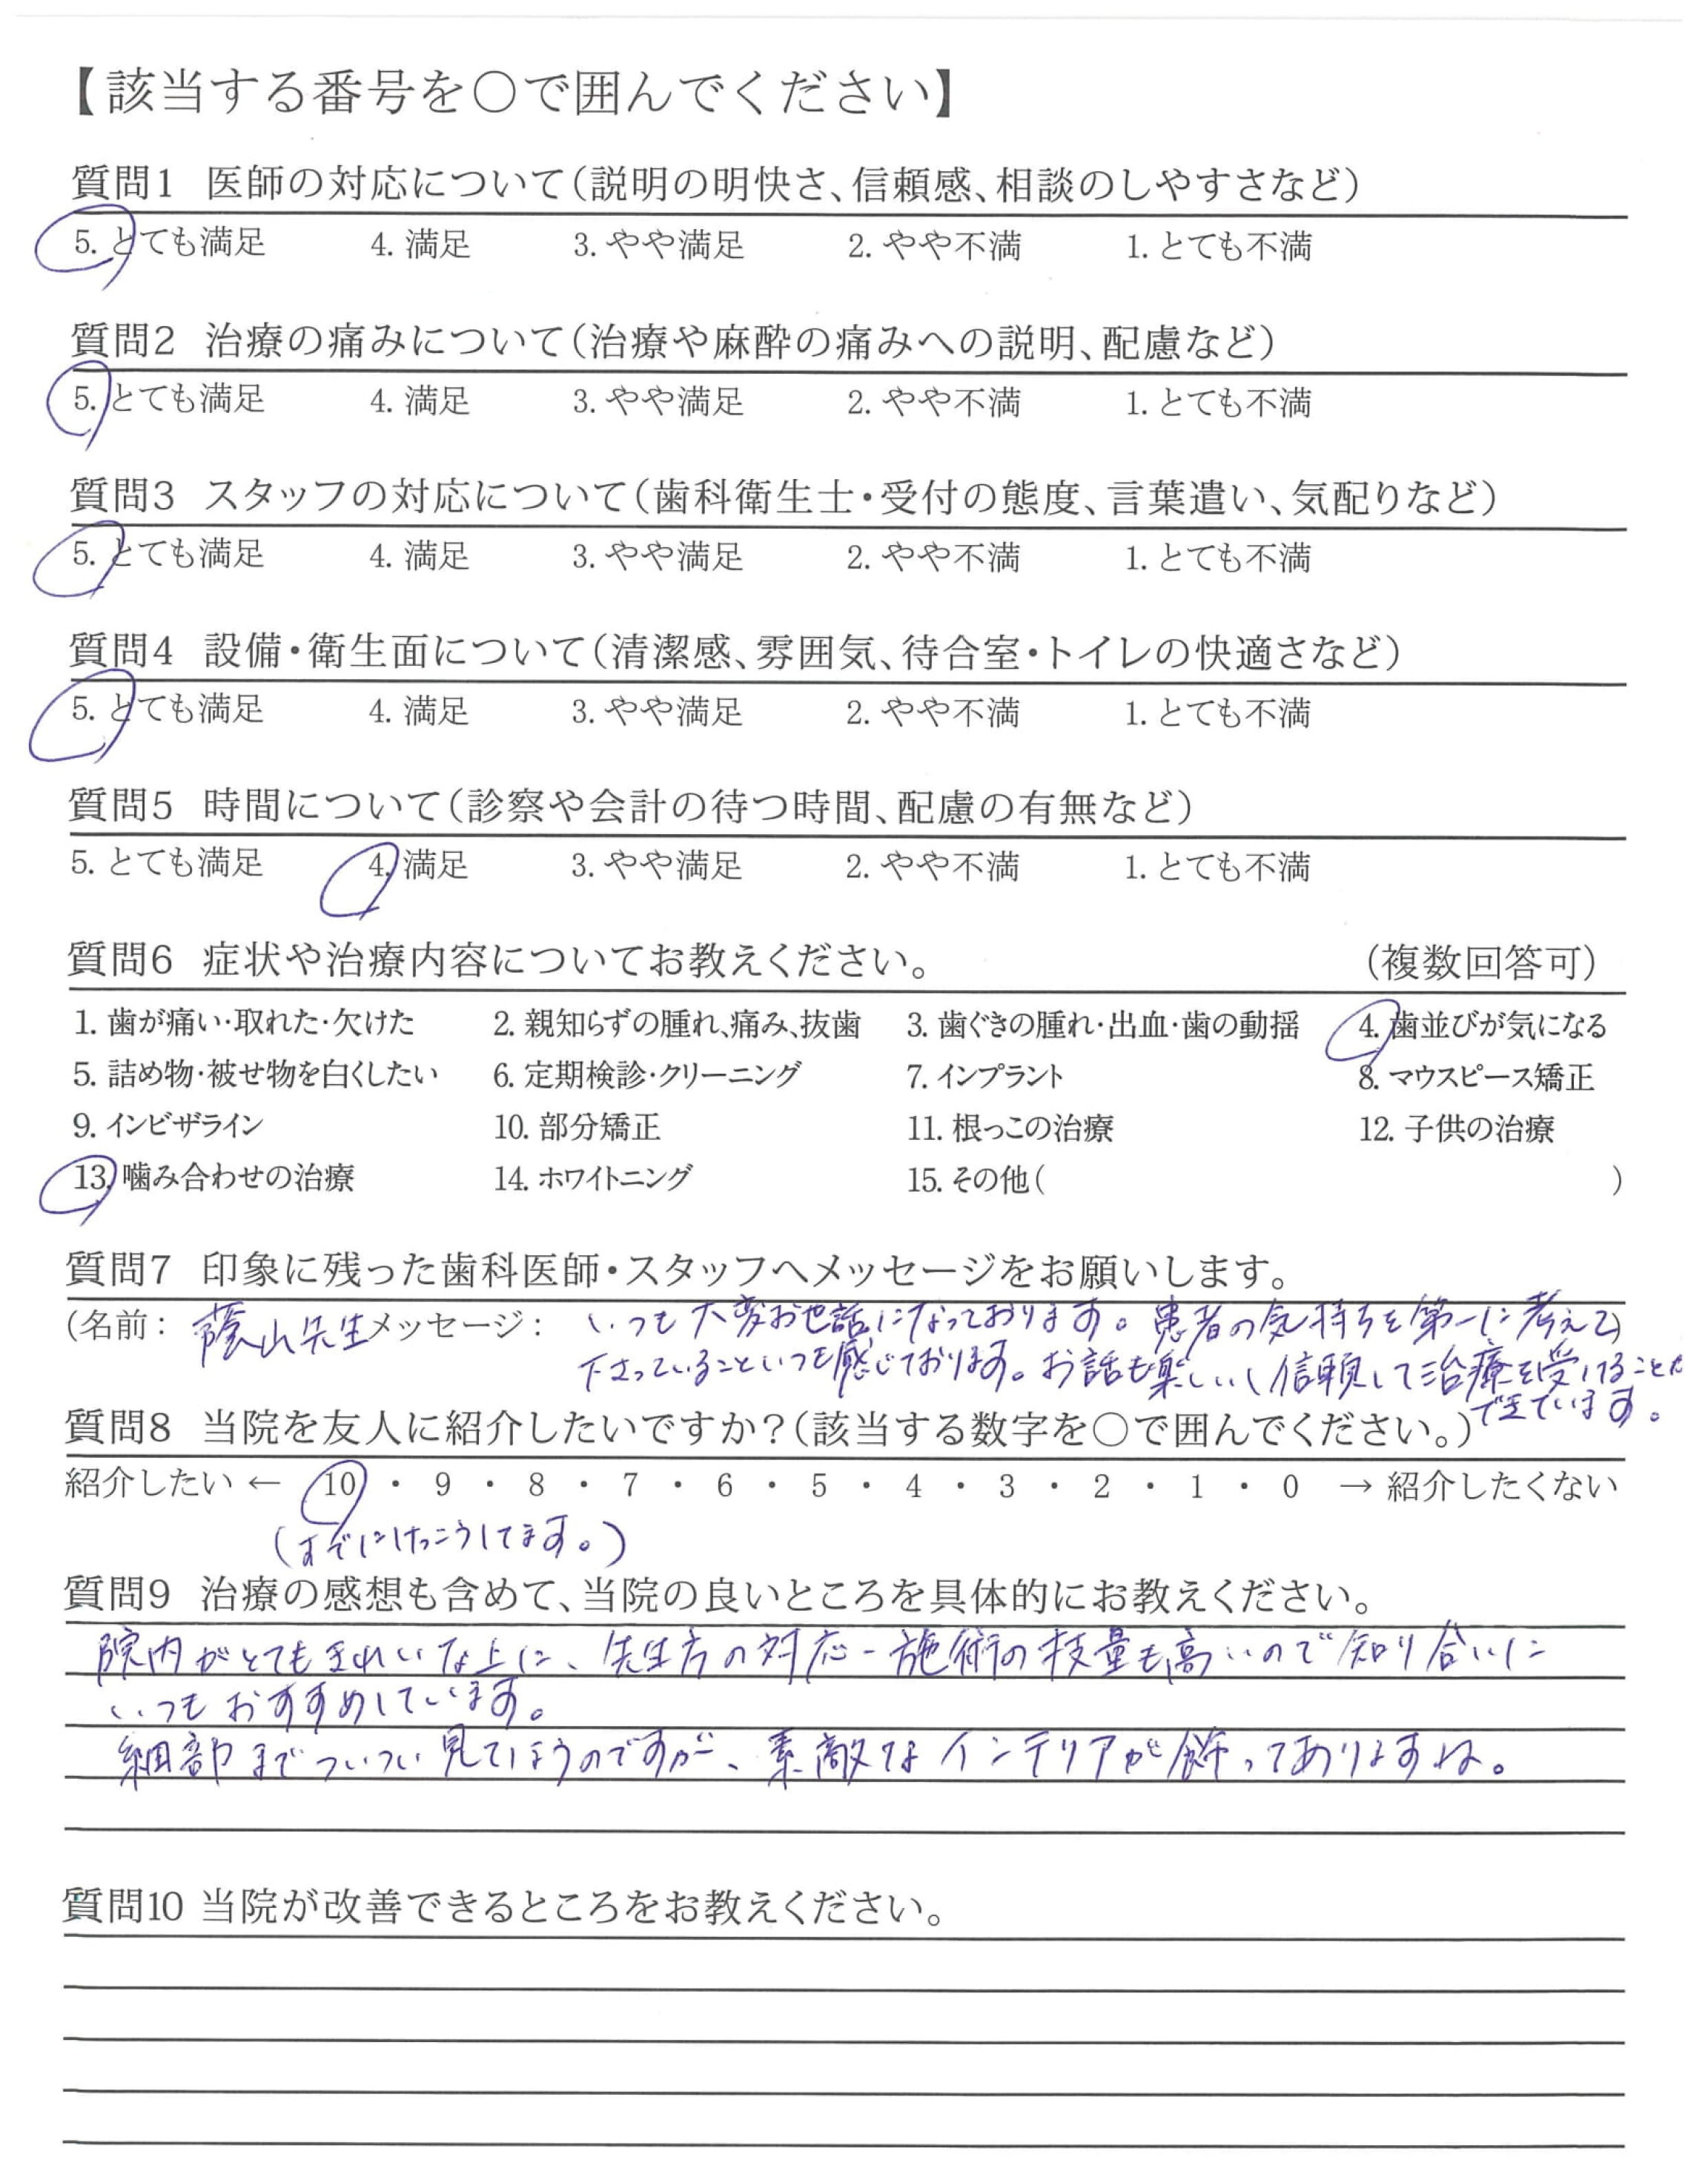 【該当する番号を〇で囲んでください】
質問1 医師の対応について(説明の明快さ、信頼感、相談のしやすさなど)
5. とても満足 4. 満足 3. やや満足 2. やや不満 1. とても不満
質問2 治療の痛みについて(治療や麻酔の痛みへの説明、配慮など)
5. とても満足 4. 満足 3. やや満足 2. やや不満 1. とても不満
質問3 スタッフの対応について(歯科衛生士・受付の態度、言葉遣い、気配りなど)
5. とても満足 4. 満足 3. やや満足 2. やや不満 1. とても不満
質問4 設備・衛生面について(清潔感、雰囲気、待合室・トイレの快適さなど)
5. とても満足 4. 満足 3. やや満足 2. やや不満 1. とても不満
質問5 時間について(診察や会計の待つ時間、配慮の有無など)
5. とても満足 4. 満足 3. やや満足 2. やや不満 1. とても不満
質問6 症状や治療内容についてお教えください。 (複数回答可)
1. 歯が痛い・取れた・欠けた 2. 親知らずの腫れ、痛み、抜歯 3. 歯ぐきの腫れ・出血・歯の動揺 4. 歯並びが気になる
5. 詰め物・被せ物を白くしたい 6. 定期検診・クリーニング 7. インプラント 8. マウスピース矯正
9. インビザライン 10. 部分矯正 11. 根っこの治療 12. 子供の治療
13. 噛み合わせの治療 14. ホワイトニング 15. その他( )
質問7 印象に残った歯科医師・スタッフへメッセージをお願いします。
(名前: 蔭山先生 メッセージ: いつも大変お世話になっております。患者の気持ちを第一に考えて
下さっていることいつも感じております。お話も楽しいし信頼して治療を受けることが
できています。
質問8 当院を友人に紹介したいですか?(該当する数字を〇で囲んでください。)
紹介したい ← 10 ・ 9 ・ 8 ・ 7 ・ 6 ・ 5 ・ 4 ・ 3 ・ 2 ・ 1 ・ 0 → 紹介したくない
(すでにけっこうしてます。)
質問9 治療の感想も含めて、当院の良いところを具体的にお教えください。
院内がとてもきれいな上に、先生方の対応・施術の技量も高いので知り合いに
いつもおすすめしています。
細部までついつい見てしまうのですが、素敵なインテリアが飾ってありますね。
質問10 当院が改善できるところをお教えください。